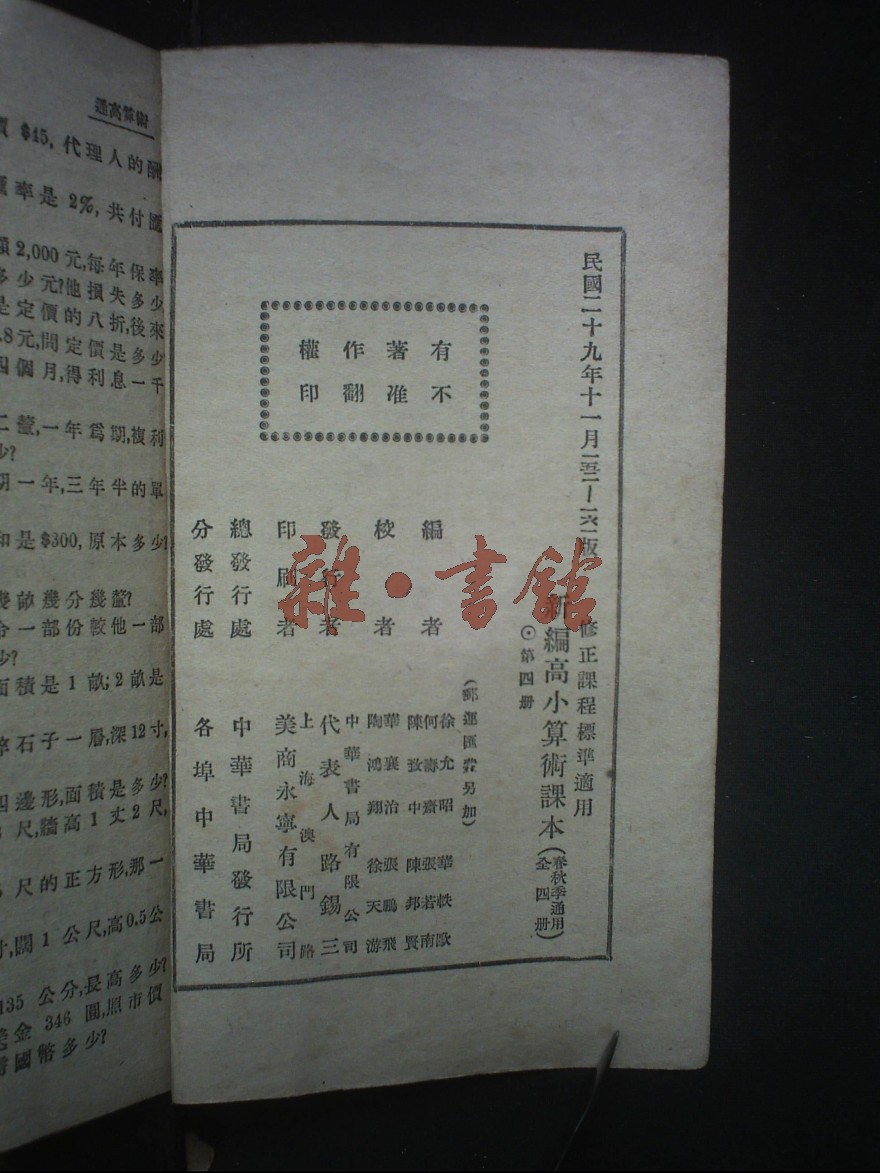 民國二十九年十一月一五一—一六一版
修正課程標準適用
新編高小算術課本(春秋季通用 全四册)
⊙第四册
(郵運匯費另加)
有著作權
不准翻印
編者
徐允昭 華軼歐
何壽齋 張若南
陳致中 陳邦賢
校者
華襄治 張鵬飛
陶鴻翔 徐天游
發行者
中華書局有限公司
代表人路錫三
印刷者
上海澳門路
美商永寧有限公司
總發行處
中華書局發行所
分發行處
各埠中華書局
雜·書館
術算高
價 $45, 代理人的酬
率是 2%, 共付匯
2,000 元,每年保率
多少元?他損失多少
是定價的八折,後來
.8元,問定價是多少
四個月,得利息一千
二釐,一年爲期,複利
少?
期一年,三年半的單
和是$300,原本多少?
幾畝幾分幾釐?
合一部份該他一部
少?
面積是 1 畝; 2 畝是
碎石子一層,深12寸,
四邊形,面積是多少?
尺,牆高 1 丈 2 尺,
尺的正方形,那一
寸,闊 1 公尺,高0.5公
135 公分,長高多少?
美金 346 圓,照市價
需國幣多少?